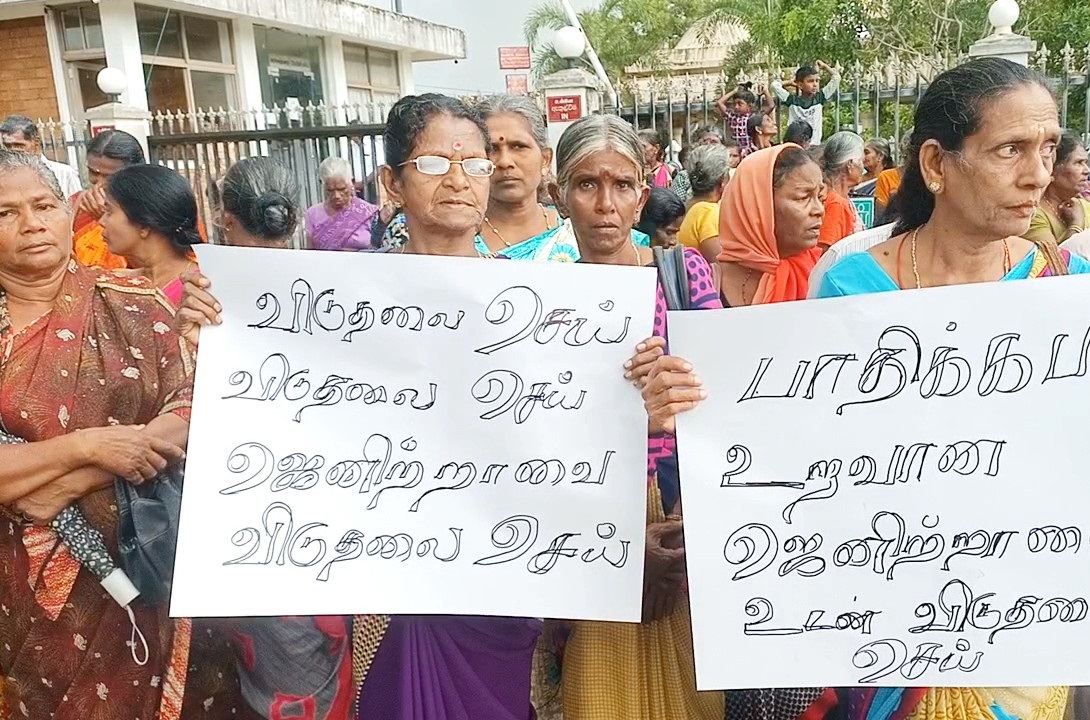 விடுதலை செய்
விடுதலை செய்
ஜெனிற்றாவை
விடுதலை செய்
பாதிக்கப
உறவான
ஜெனிற்றாவை
உடன் விடுதலை
செய்
IN